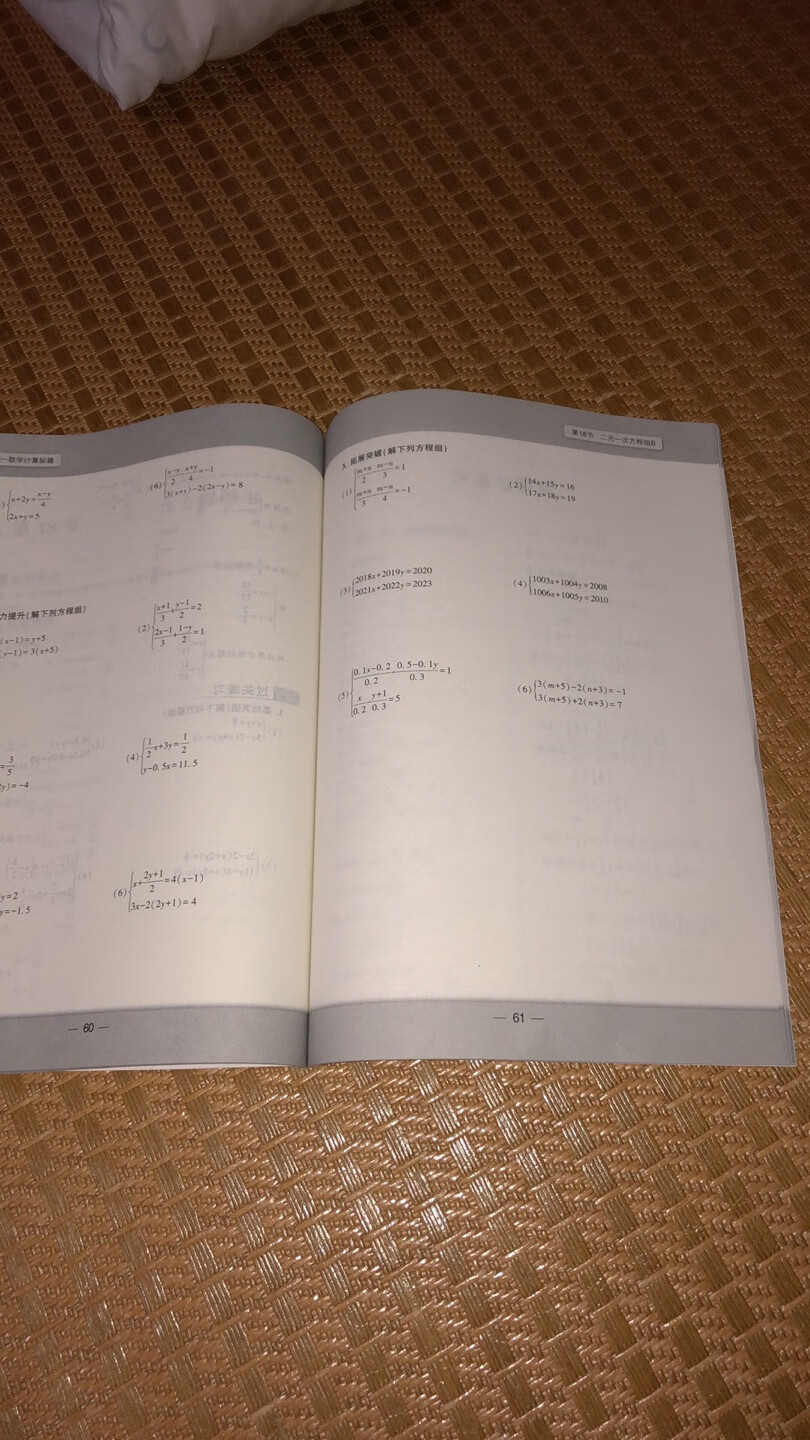 一数学计算秘籍
{x+2y=(x-y)/4
2x+y=5
(6){(x-y)/2-(x+y)/4=-1
3(x+y)-2(2x-y)=8
力提升(解下列方程组)
(x-1)=y+5
(y-1)=3(x+5)
(2){(x+1)/3+(y-1)/2=2
(2x-1)/3+(1-y)/2=1
=3/5
y)=-4
(4){1/2x+3y=1/2
y-0.5x=11.5
y=2
y=-1.5
(6){x+(2y+1)/2=4(x-1)
3x-2(2y+1)=4
— 60 —
第18节 二元一次方程组B
3. 拓展突破(解下列方程组)
(1){(m+n)/2-(m-n)/3=1
(m+n)/3-(m-n)/4=-1
(2){14x+15y=16
17x+18y=19
(3){2018x+2019y=2020
2021x+2022y=2023
(4){1003x+1004y=2008
1006x+1005y=2010
(5){(0.1x-0.2)/0.2-(0.5-0.1y)/0.3=1
x/0.2-(y+1)/0.3=5
(6){3(m+5)-2(n+3)=-1
3(m+5)+2(n+3)=7
— 61 —